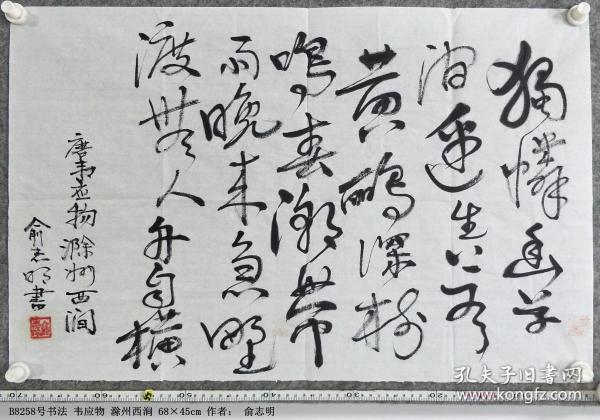 獨憐幽草
澗邊生上有
黄鸝深樹
鳴春潮帶
雨晚来急野
渡無人舟自横
唐韦应物滁州西澗
俞志明書
孔夫子旧书网
B8258号书法 韦应物 滁州西涧 68×45cm 作者： 俞志明